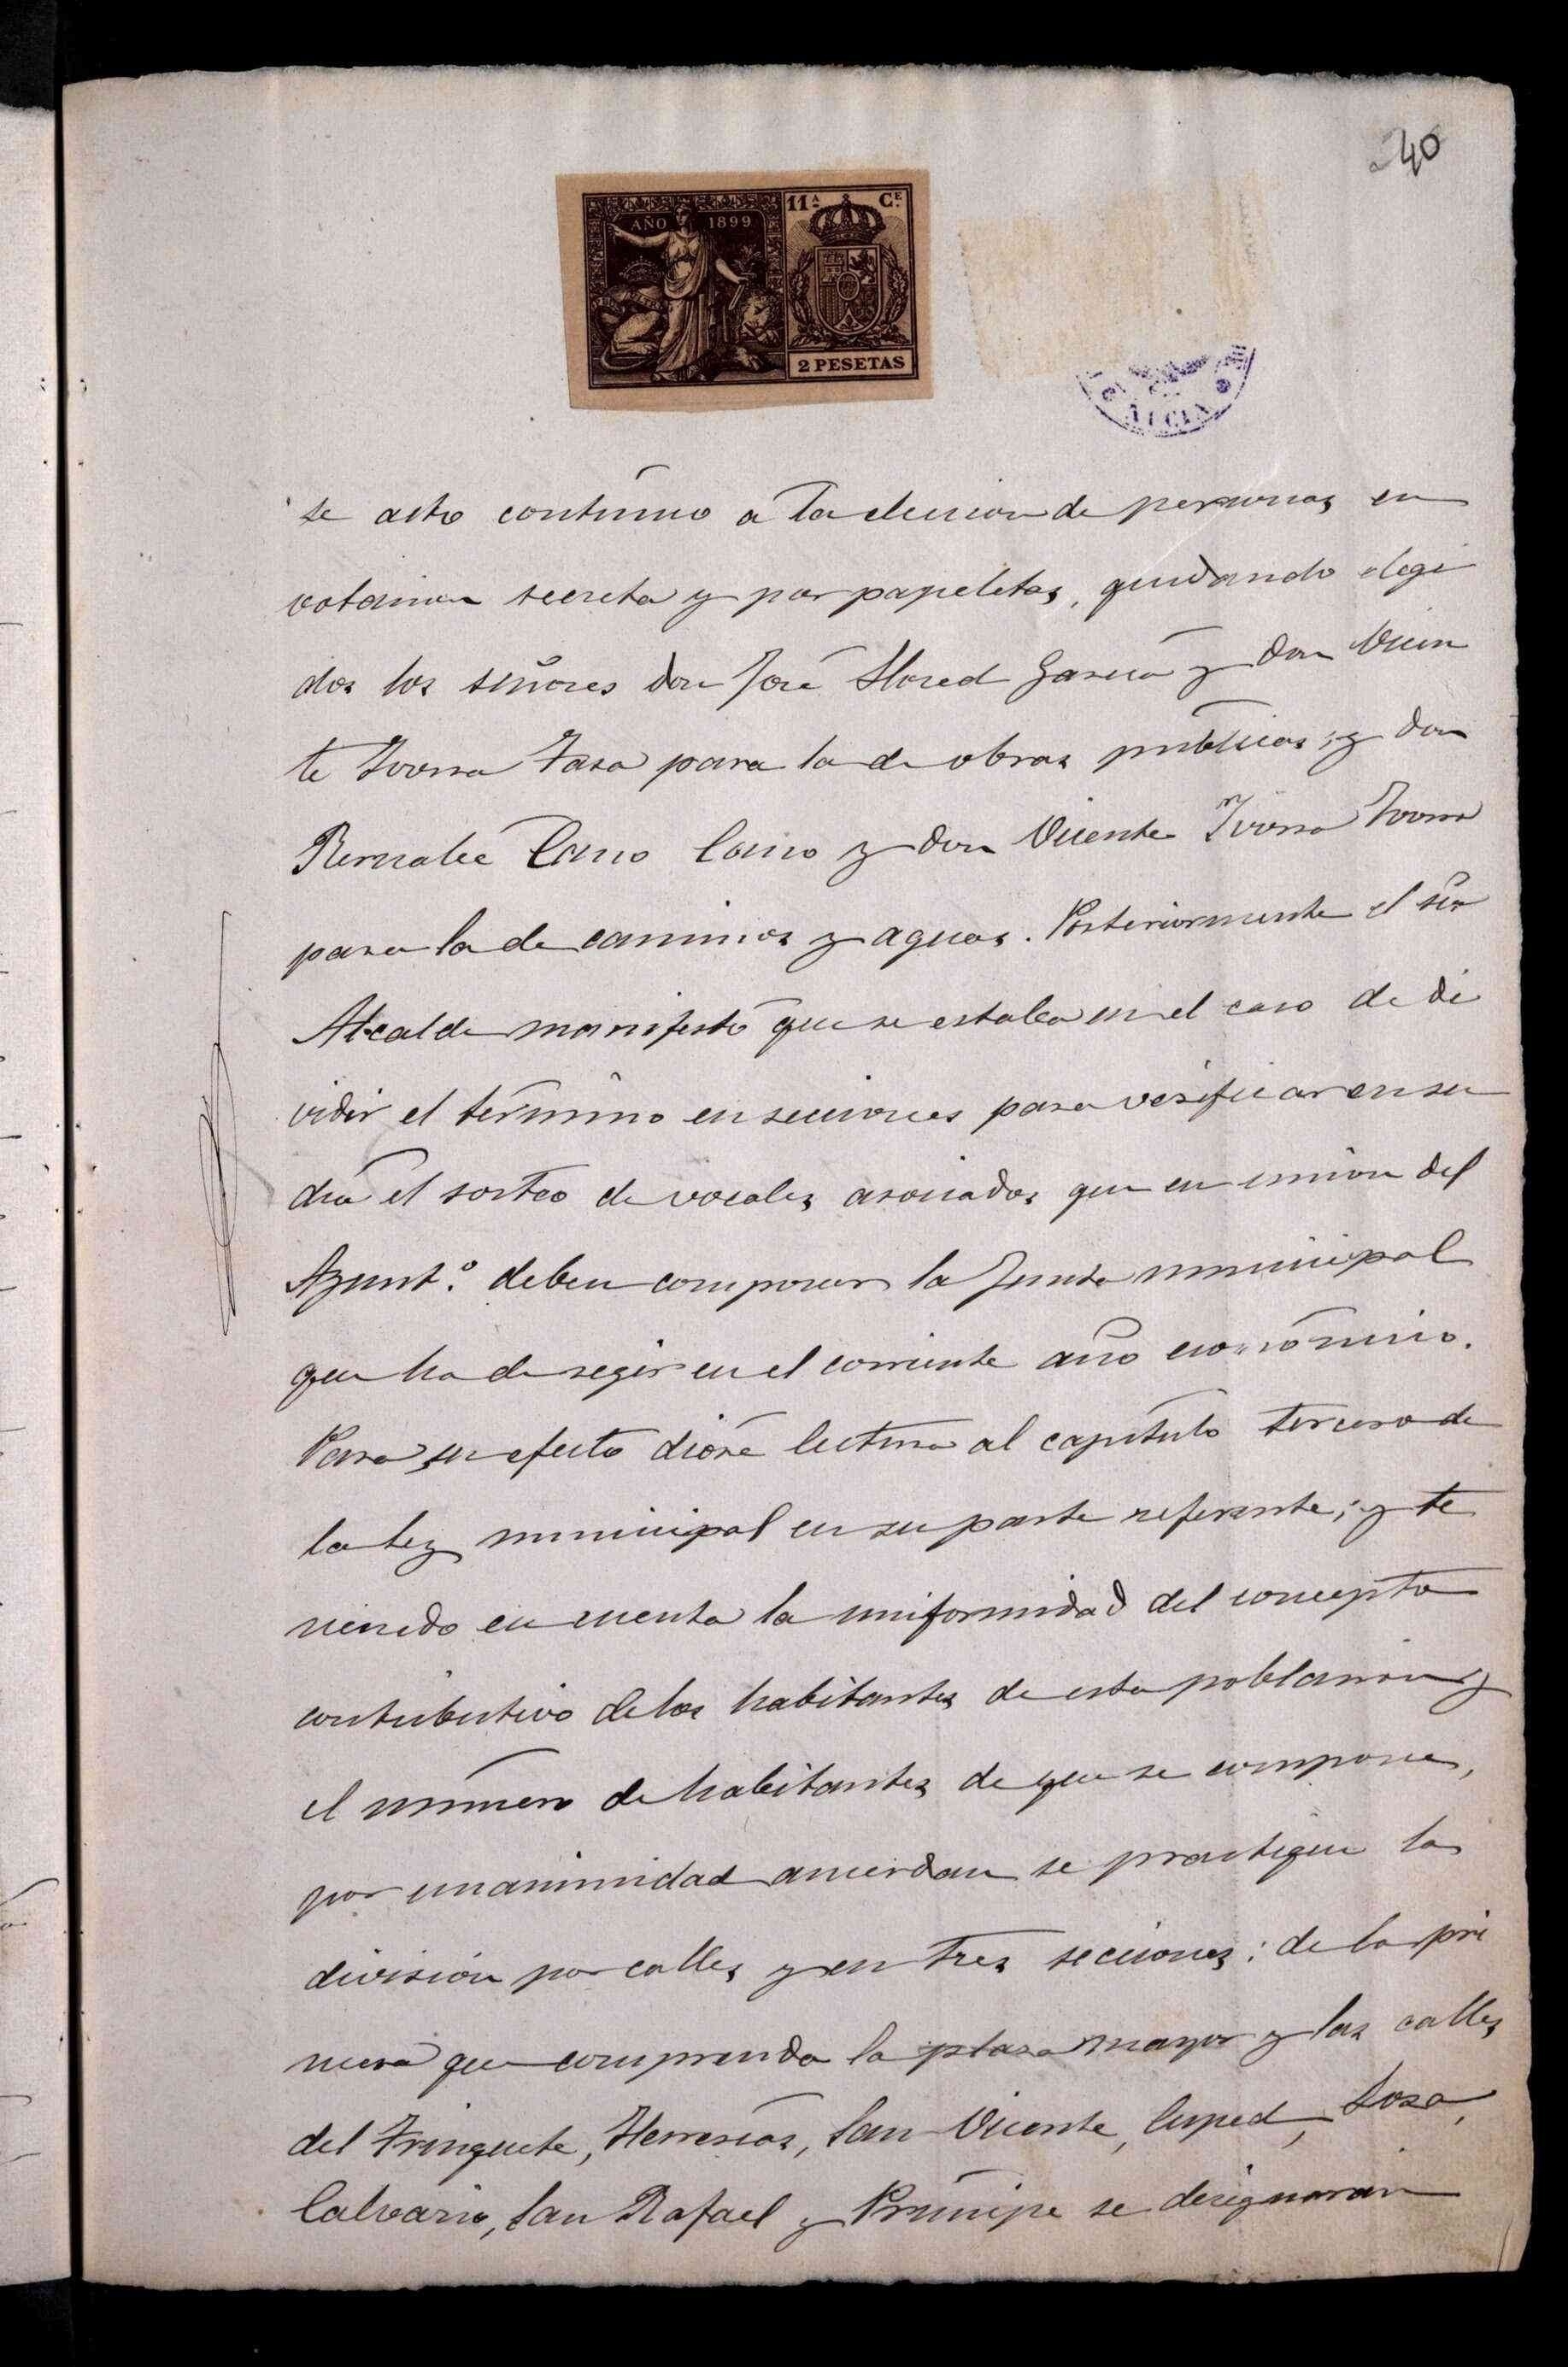 40
AÑO 1899
11ª Cᴱ.
2 PESETAS
se acto contínuo a la eleccion de personas en
votacion secreta y por papeletas, quedando elegi
dos los señores don José Llored García y don Vicen
te Ivorra Tasa para la de obras públicas; y don
Bernabé Cano Cano y don Vicente Ivorra Ivorra
para la de caminos y aguas. Posteriormente el Sr.
Alcalde manifestó que se estaba en el caso de di
vidir el término en secciones para verificar en su
día el sorteo de vocales asociados que en union del
Ayuntº. deben componer la Junta municipal
que ha de regir en el corriente año económico.
Para su efecto dióse lectura al capítulo tercero de
la ley municipal en su parte referente; y te
niendo en cuenta la uniformidad del concepto
contributivo de los habitantes de esta poblacion y
el número de habitantes de que se compone,
por unanimidad acuerdan se practique la
division por calles y en tres secciones: de la pri
mera que comprenda la plaza mayor y las calles
del Trinquete, Herrerías, San Vicente, Cuped, Losa,
Calvario, San Rafael y Príncipe se designarán